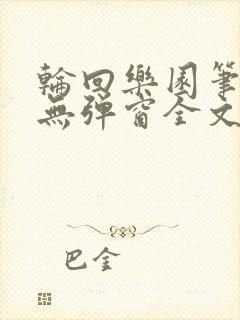 輪回樂園筆
無彈窗全文
巴金